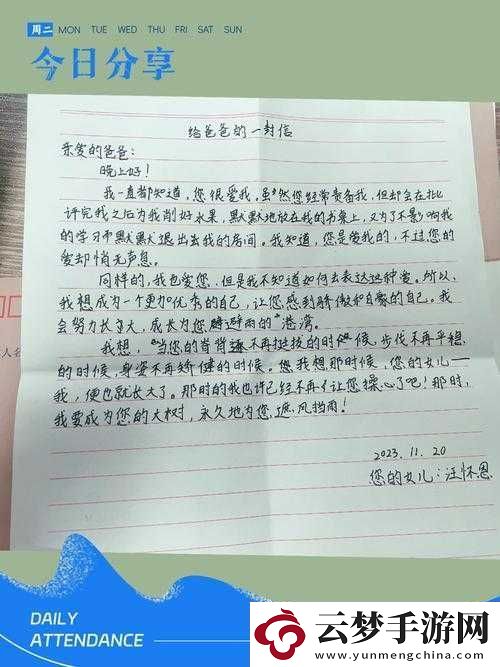 周二 MON TUE WED THU FRI SAT SUN
今日分享
给爸爸的一封信
亲爱的爸爸：
晚上好！
我一直都知道，您很爱我，虽然您经常责备我，但却会在批
评完我之后为我削好水果，默默地放在我的书桌上，又为了不影响我
的学习而默默退出去我的房间。我知道，您是爱我的，不过您的
爱却悄无声息。
同样的，我也爱您，但是我不知道如何去表达这种爱。所以，
我想成为一个更加优秀的自己，让您感到骄傲和自豪的自己。我
会努力长大，成长为您避雨的港湾。
我想，当您的背脊不再挺拔的时候，步伐不再平稳
的时候，身姿不再矫健的时候。我想那时候，您的女儿——
我，便也就长大了。那时的我也许已经不再让您操心了吧！那时，
我要成为您的大树，永久地为您遮风挡雨！
2023.11.20
您的女儿：汪怀恩
DAILY
ATTENDANCE
云梦手游网
www.yunmengchina.com